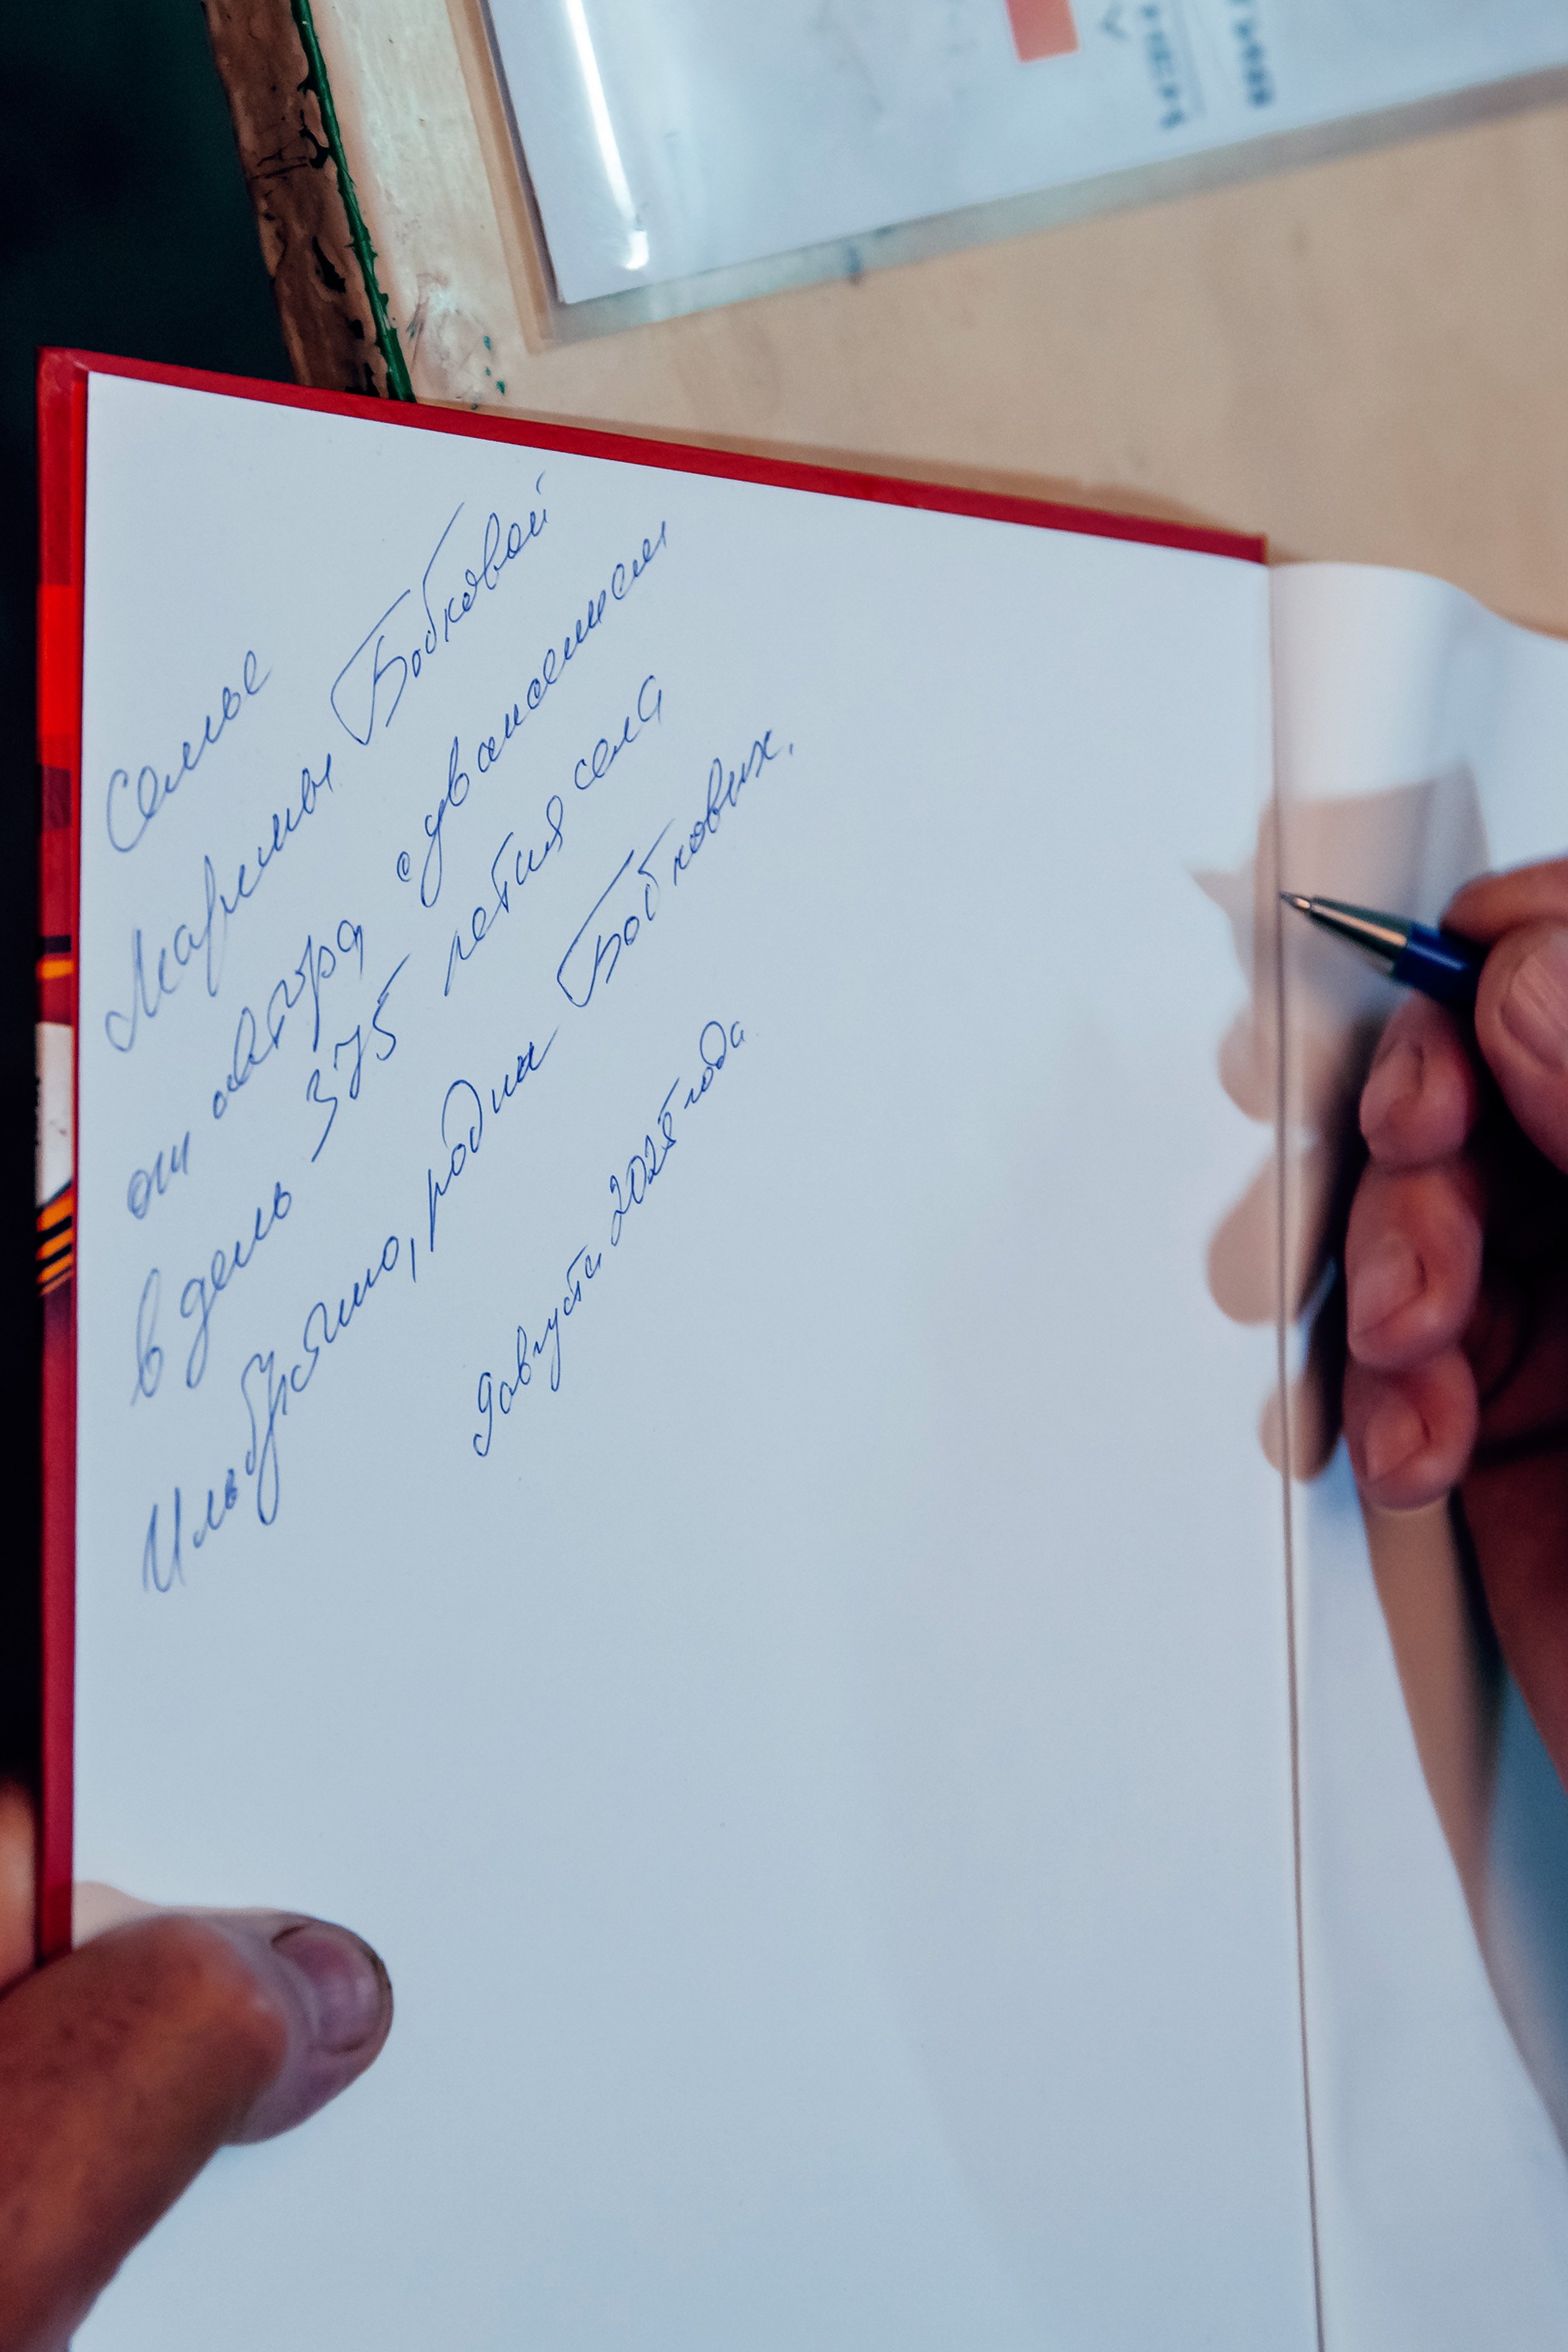 Семье
Марины Бобковой
от автора, с уважением
в день 375 летия села
Ильбряшно, родины Бобковых.
9 августа 2025 года